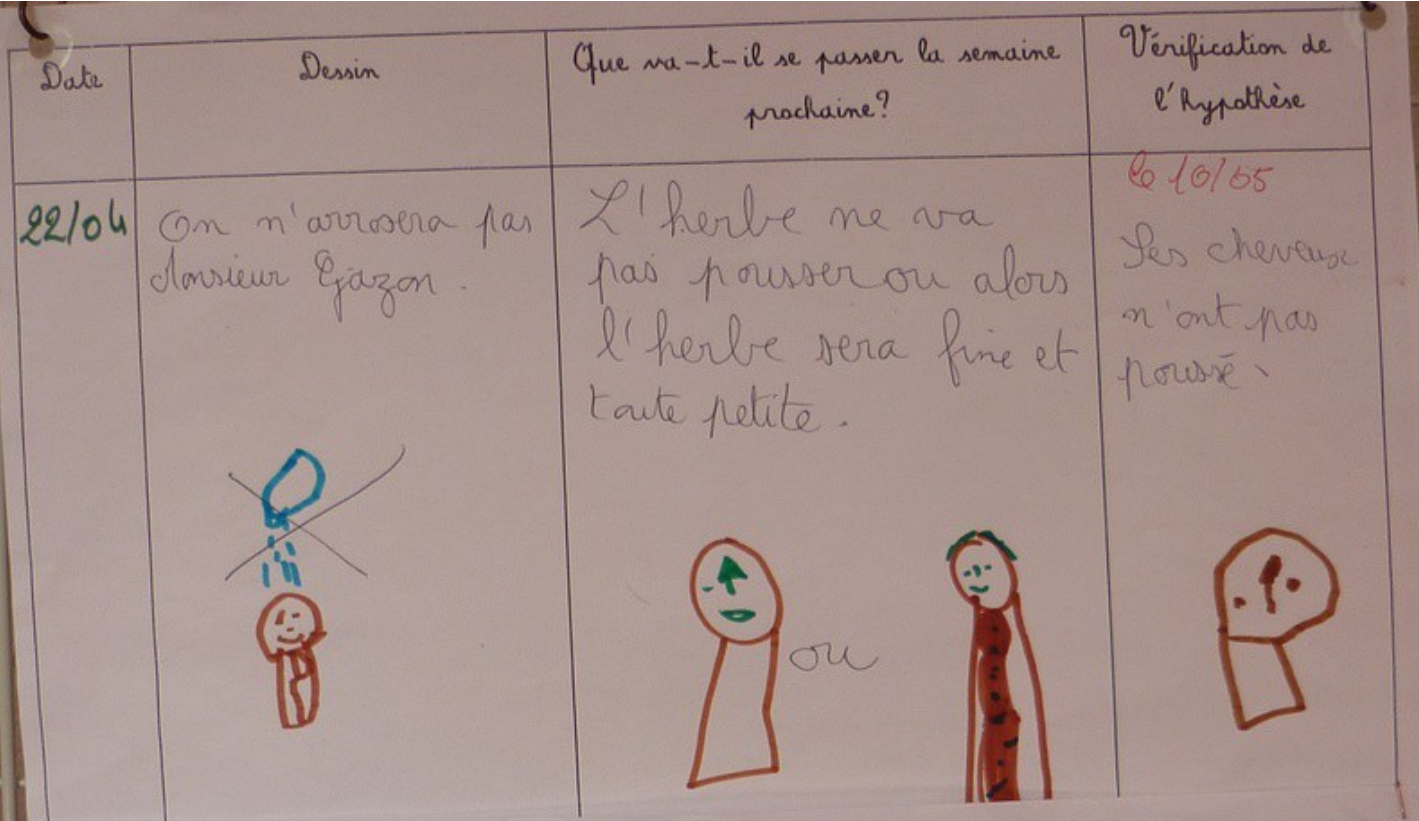 Date
Dessin
Que va-t-il se passer la semaine
prochaine?
Vérification de
l'hypothèse
22/04
On n'arrosera pas
Monsieur Gazon.
L'herbe ne va
pas pousser ou alors
l'herbe sera fine et
toute petite.
ou
le 10/05
Ses cheveux
n'ont pas
poussé.